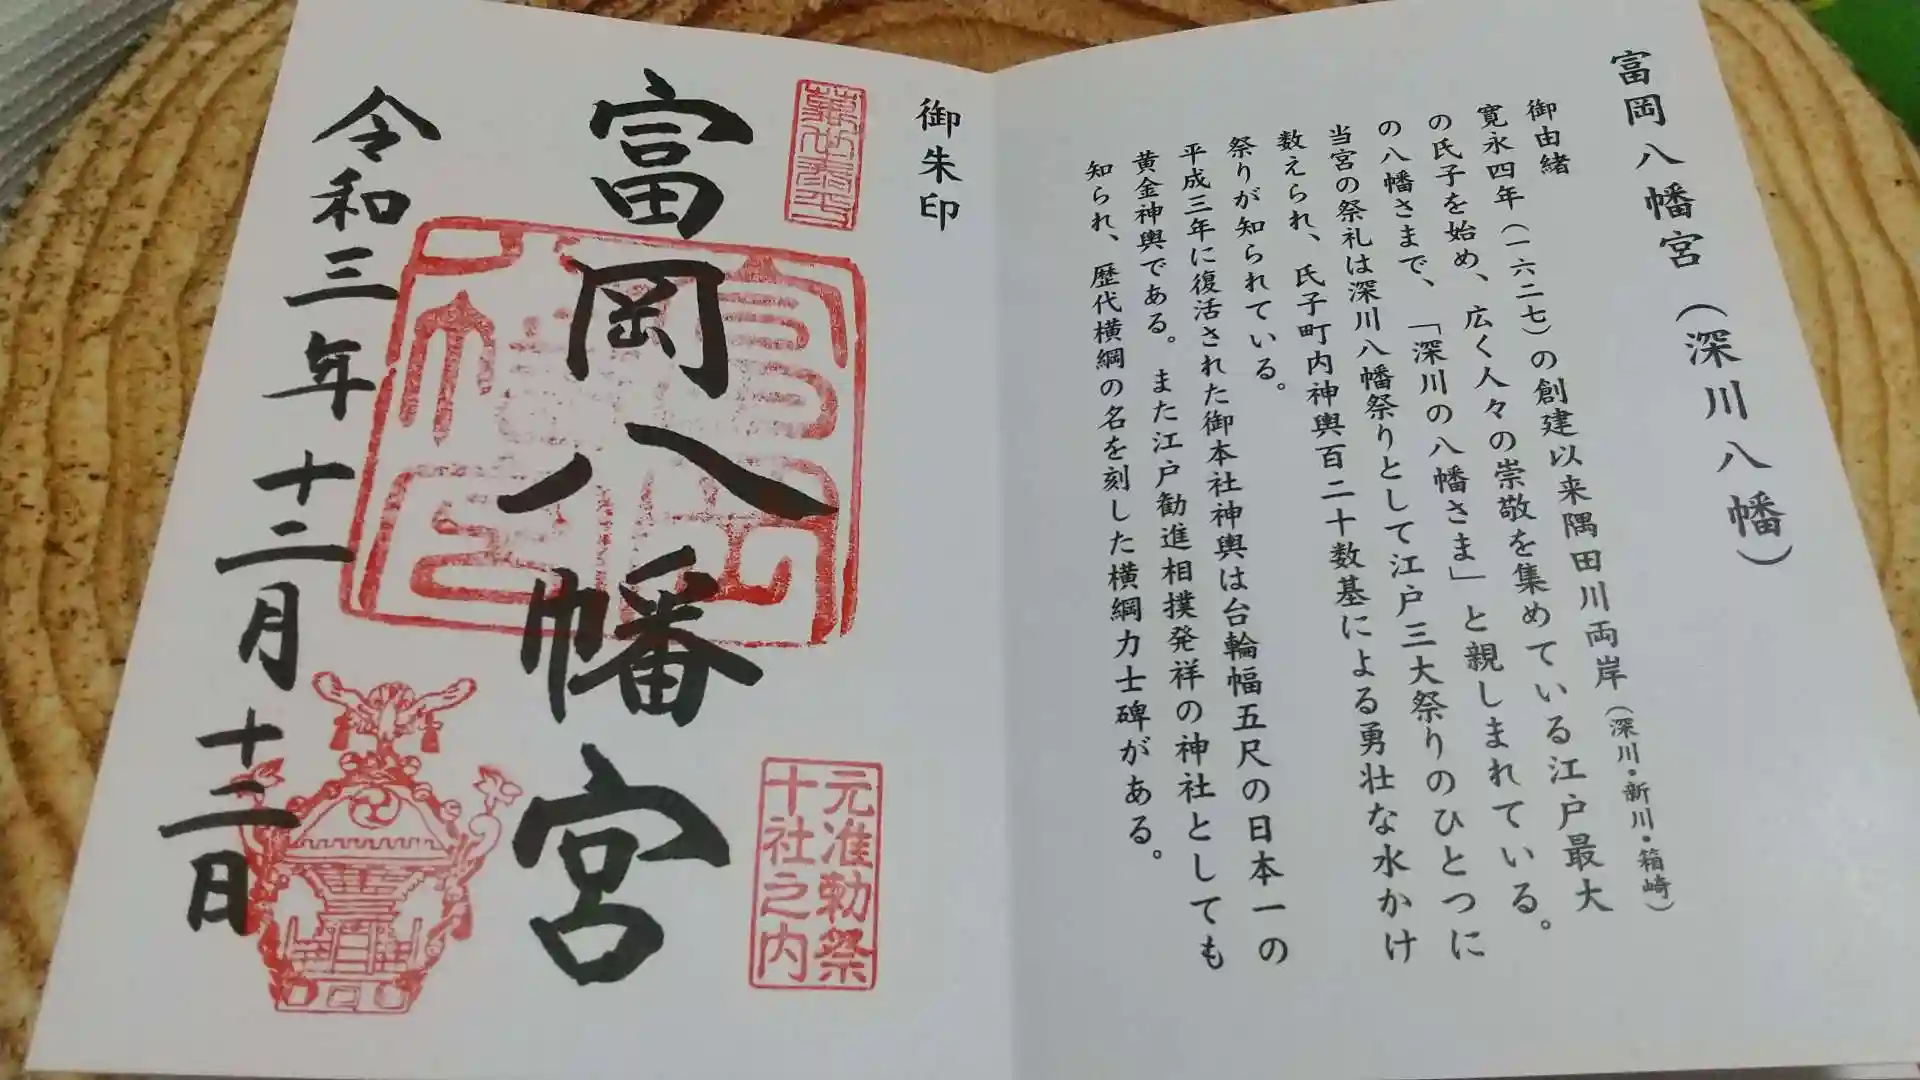 富岡八幡宮（深川八幡）
御由緒
寛永四年（一六二七）の創建以来隅田川両岸（深川・新川・箱崎）
の氏子を始め、広く人々の崇敬を集めている江戸最大
の八幡さまで、「深川の八幡さま」と親しまれている。
当宮の祭礼は深川八幡祭りとして江戸三大祭りのひとつに
数えられ、氏子町内神輿百二十数基による勇壮な水かけ
祭りが知られている。
平成三年に復活された御本社神輿は台輪幅五尺の日本一の
黄金神輿である。また江戸勧進相撲発祥の神社としても
知られ、歴代横綱の名を刻した横綱力士碑がある。
御朱印
富岡八幡宮
元准勅祭
十社之内
令和三年十二月十二日